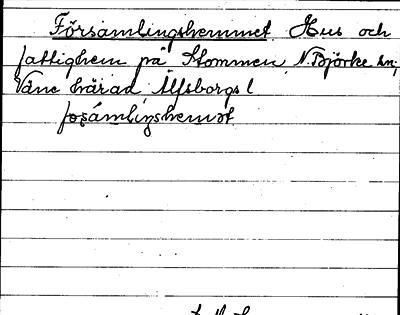 Församlingshemmet Hus och
fattighem på Stommen, N. Björke sn,
Väne härad Älfsborgs l